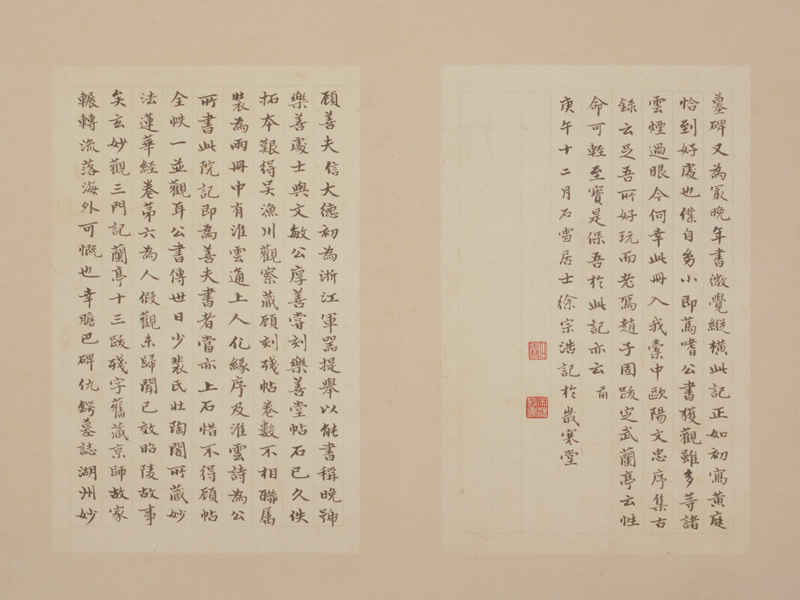 墓碑又為冣晚年書微覺縱橫此記正如初寫黃庭
恰到好處也僕自小即篤嗜公書獲觀雖多等諸
雲煙過眼今何幸此冊入我橐中歐陽文忠序集古
錄云足吾所好玩而老焉趙子固跋定武蘭亭云性
命可輕至寶是保吾於此記亦云 前
庚午十二月石雪居士徐宗浩記於歲寒堂
顧善夫信大德初為浙江軍器提舉以能書稱晚號
樂善處士與文敏公厚善嘗刻樂善堂帖石已久佚
拓本艱得吳漁川觀察藏顧刻殘帖卷數不相聯屬
裝為兩冊中有淮雲通上人化緣序及淮雲詩為公
所書此院記即為善夫書者當亦上石惜不得顧帖
全帙一並觀耳公書傳世日少裴氏壯陶閣所藏妙
法蓮華經卷第六為人假觀未歸聞已效昭陵故事
矣玄妙觀三門記蘭亭十三跋殘字舊藏京師故家
輾轉流落海外可慨也幸膽巴碑仇鍔墓誌湖州妙